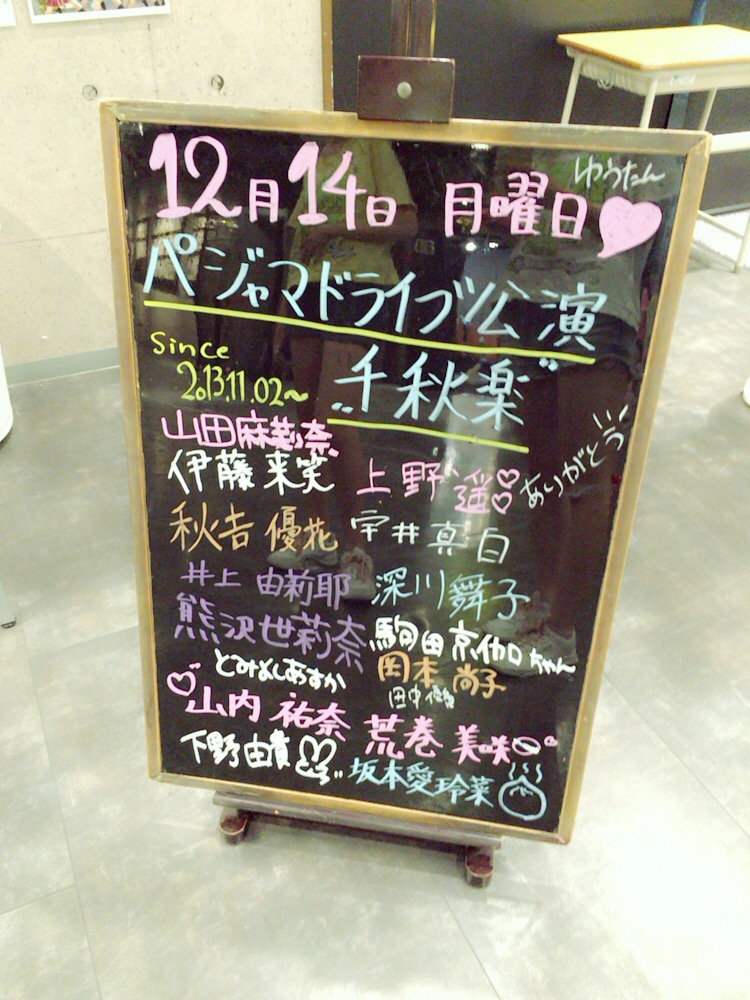 ゆうたん
12月14日 月曜日
パジャマドライブ公演
since
2013.11.02〜
"千秋楽"
ありがとう
山田麻莉奈
伊藤来笑
上野遥
秋吉優花
宇井真白
井上由莉耶
深川舞子
熊沢世莉奈
駒田京伽ちゃん
とみよしあすか
岡本尚子
田中優香
山内祐奈
荒巻美咲
下野由貴
坂本愛玲菜